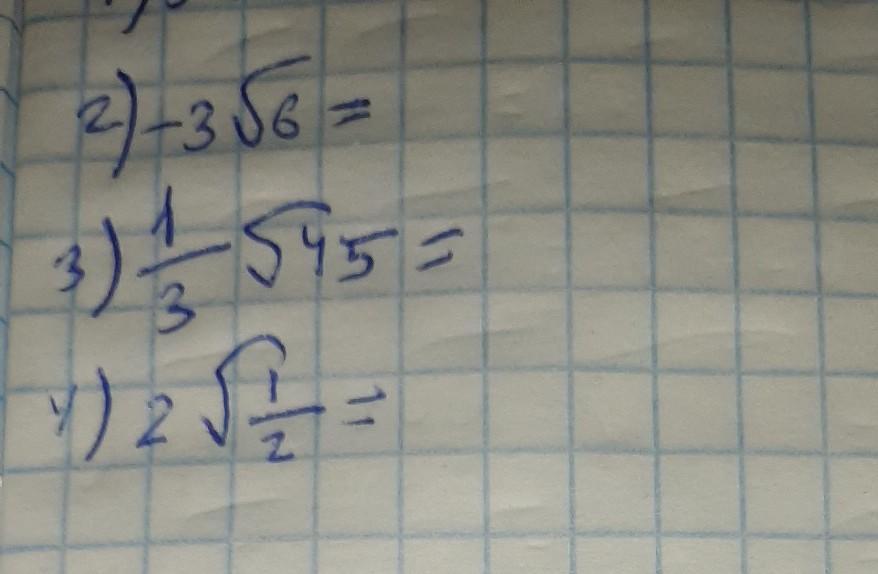 2) -3√6 =
3) 1/3 √45 =
4) 2 √1/2 =